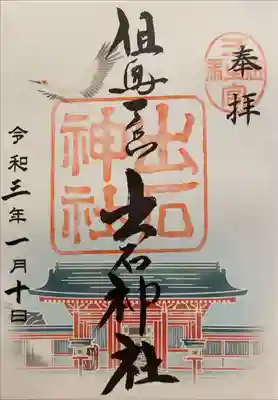 奉拝
但馬一宮 出石神社
出石
神社
令和三年一月十日